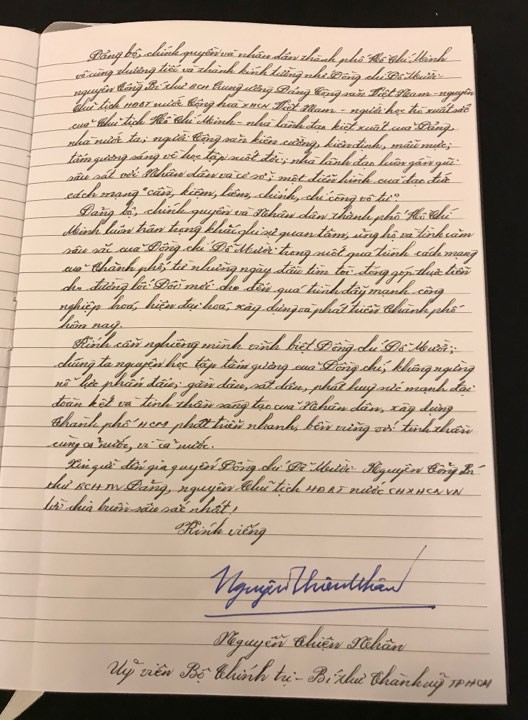 Đảng bộ, chính quyền và nhân dân thành phố Hồ Chí Minh
vô cùng thương tiếc và thành kính tưởng nhớ Đồng chí Đỗ Mười -
nguyên Tổng Bí thư BCH Trung ương Đảng Cộng sản Việt Nam - nguyên
Chủ tịch HĐBT nước Cộng hòa XHCN Việt Nam - người học trò xuất sắc
của Chủ tịch Hồ Chí Minh - nhà lãnh đạo kiệt xuất của Đảng,
nhà nước ta; người Cộng sản kiên cường, kiên định, mẫu mực;
tấm gương sáng về học tập suốt đời; nhà lãnh đạo luôn gần gũi
sâu sát với Nhân dân và cơ sở; một điển hình của đạo đức
cách mạng "cần, kiệm, liêm, chính, chí công vô tư".
Đảng bộ, chính quyền và Nhân dân thành phố Hồ Chí
Minh luôn trân trọng khắc ghi sự quan tâm, ủng hộ và tình cảm
sâu sắc của Đồng chí Đỗ Mười trong suốt quá trình cách mạng
của Thành phố, từ những ngày đầu tìm tòi đóng góp thực tiễn
cho đường lối Đổi mới cho đến quá trình đẩy mạnh công
nghiệp hoá, hiện đại hoá, xây dựng và phát triển Thành phố
hôm nay.
Kính cẩn nghiêng mình vĩnh biệt Đồng chí Đỗ Mười;
chúng ta nguyện học tập tấm gương của Đồng chí, không ngừng
nỗ lực phấn đấu; gần dân, sát dân, phát huy sức mạnh đại
đoàn kết và tinh thần sáng tạo của Nhân dân, xây dựng
Thành phố HCM phát triển nhanh, bền vững với tinh thần
cùng cả nước, vì cả nước.
Xin gửi đến gia quyến Đồng chí Đỗ Mười - Nguyên Tổng Bí
thư BCHTW Đảng, nguyên Chủ tịch HĐBT nước CHXHCNVN
lời chia buồn sâu sắc nhất!
Kính viếng
Nguyễn Thiện Nhân
Nguyễn Thiện Nhân
Uỷ viên Bộ Chính trị - Bí thư Thành uỷ TP HCM